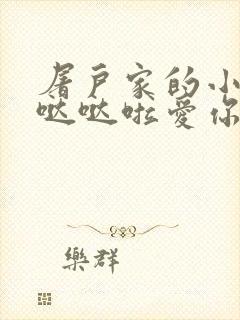 屠戶家的小
哒哒啦愛你
樂群